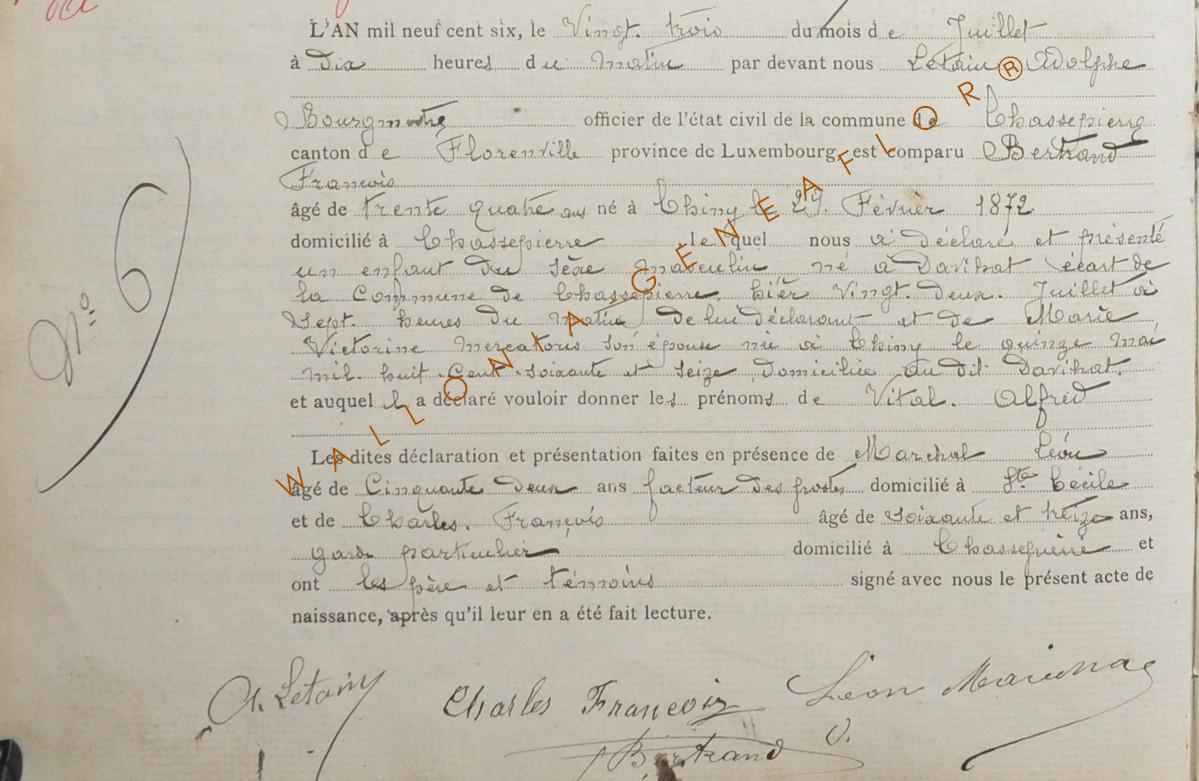 L'AN mil neuf cent six, le Vingt. trois du mois de Juillet
à dix heures du matin par devant nous Letain Adolphe
Bourgmestre officier de l'état civil de la commune de Chassepierre
canton de Florenville province de Luxembourg, est comparu Bertrand
François
âgé de trente quatre ans né à Chiny le 29. Février 1872
domicilié à Chassepierre lequel nous a déclaré et présenté
un enfant du sèxe masculin né à Davihat écart de
la Commune de Chassepierre, hièr Vingt. deux. Juillet à
Sept. heures du matin de lui déclarant et de Marie
Victorine Mercatoris son épouse née à Chiny le quinze Mai
mil. huit Cent soixante et Seize domiciliée au dit Davihat.
et auquel il a déclaré vouloir donner les prénoms de Vital. Alfred
Les dites déclaration et présentation faites en présence de Marchal Léon
âgé de Cinquante deux ans facteur des postes domicilié à Ste Cécile
et de Charles. François âgé de soixante et treize ans,
garde particulier domicilié à Chassepierre et
ont les père et témoins signé avec nous le présent acte de
naissance, après qu'il leur en a été fait lecture.
N° 6
A. Letain Charles François Léon Marchal
Bertrand
WALLONIA GENEAFLOR®